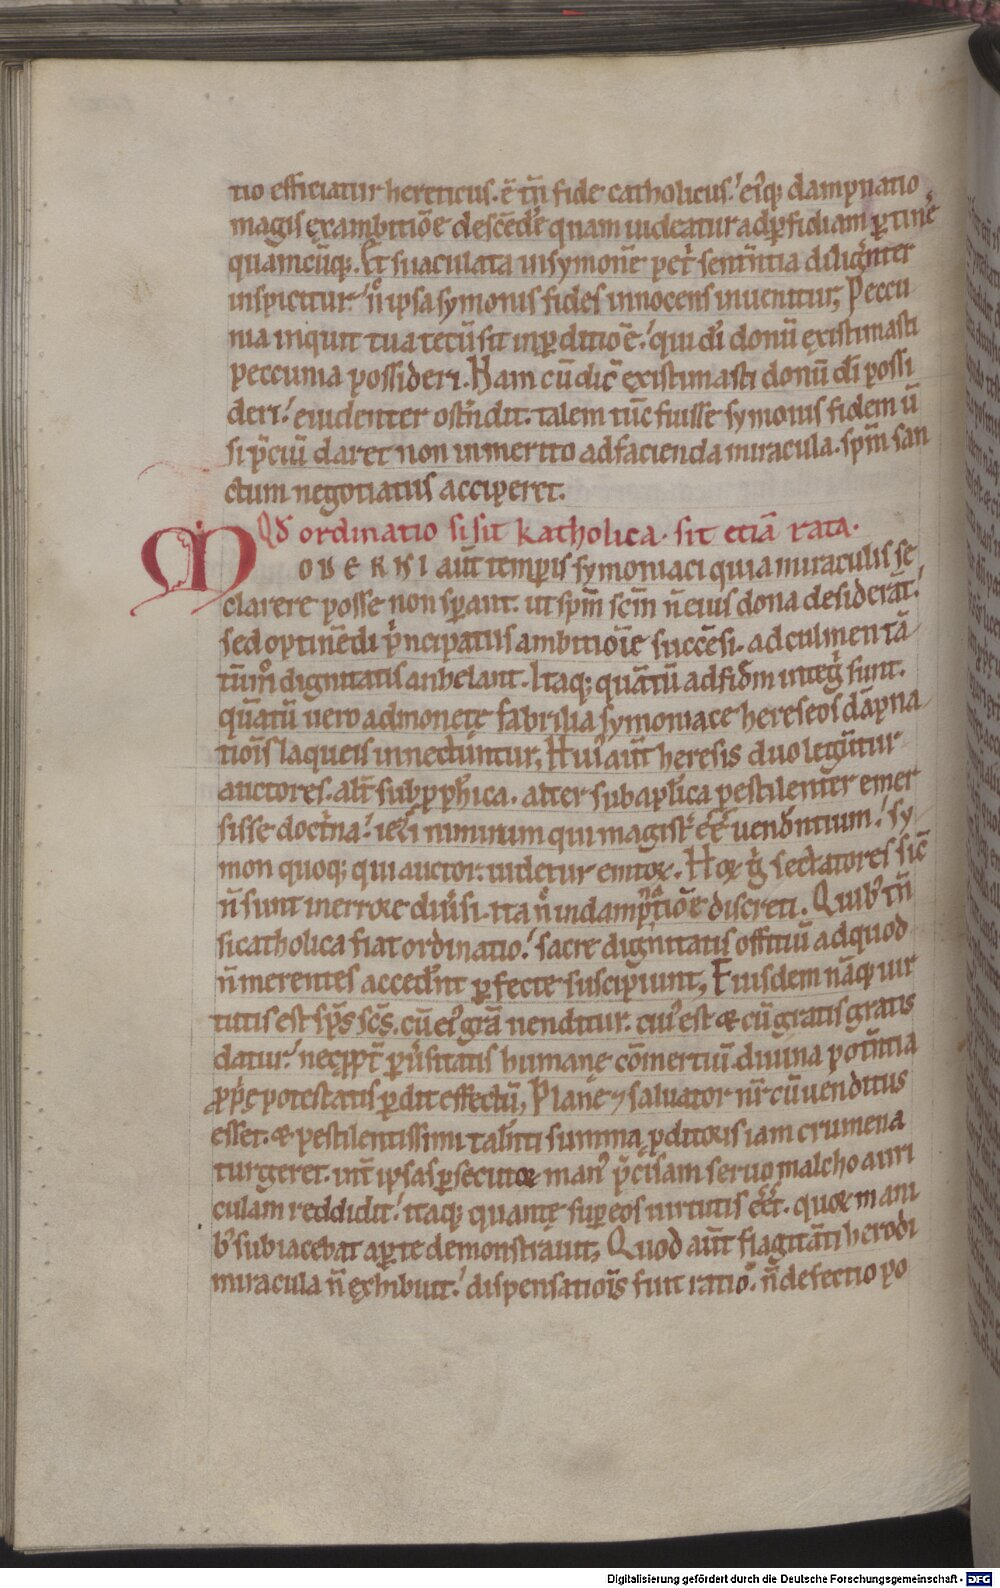 tio efficiatur hereticus. ē tn̄ fide catholicus. eiꝰq; dampnatio
magis ex ambitiōe descēdeꝰ quam uideatur ad ꝑfidiam ꝑtinē
quamcūq;. Et sua culata in symonē petꝰ sententia diligenter
inspicitur. n̊ ipsa symonis fides innocens inuenitur; Peccu
nia inquit tua tecū sit in ꝑditiōe. qui dī donū existimasti
peccunia possideri. Nam cū dic̄ existimasti donū dī possi
deri. euidenter ostn̄dit. talem tūc fuisse symonis fidem ū
si p̄ciū daret non inmerito ad facienda miracula. spm̄ san
ctum negotiatus acciperet.
Qđ ordinatio si sit katholica. sit etiā rata.
MOUERNI aut̄ temꝑis symoniaci quia miraculis se
clarere posse non sꝑant. ut spm̄ scm̄ n̄ eius dona desiderāt.
sed optinēdi p̄ncipatus ambitiōīe succēsi. ad culmen tā
tūm̊ dignitatis anhelant. Itaq; quātū ad fidm̄ integ̊ sunt.
quātū uero ad monetę fabrilia symoniace hereseos dāpna
tiōis laqueis innectūntur, Huiꝰ aut̄ heresis duo leguntur
auctores. alt̄ sub ꝓphica. alter sub aplica pestilenter emer
sisse doctrina. iezi nimirum qui magistꝰ ēē uendentium. sy
mon quoq; qui auctor uidetur emtoꝝ. Hoꝝ g̊ sectatores sic̄
n̄ sunt in errore diuꝰsi. ita n̊ in dampnatiōe discreti. Quibꝰ tn̄
si catholica fiat ordinatio. sacre dignitatis offitiū ad quod
n̄ merentes accedn̄t ꝑfecte suscipiunt, Eiusdem nāq; uir
tutis est sp̄s scs̄. cū eiꝰ gr̄a uenditur. cuiꝰ est & cū gratis gratis
datur. nec ꝓpt̄ ꝑuꝰsitatis humanę cōmertiū. diuina potn̄tia
ꝓp̄ę potestatis ꝑdit effectū, Plane ⁊ saluator nr̄ cū uenditus
esset. & pestilentissimi talenti summa ꝓditoris iam crumena
turgeret. int̄ ipsas ꝑsecutoꝝ manꝰ p̄cisam seruo malcho auri
culam reddidit. itaq; quantę suꝑ eos uirtutis ēēt. quoꝝ mani
bꝰ subiacebat aꝑte demonstrauit, Quod aut̄ flagitāti herodi
miracula n̄ exhibuit. dispensatiōis fuit ratio. n̄ defectio po
Digitalisierung gefördert durch die Deutsche Forschungsgemeinschaft - DFG